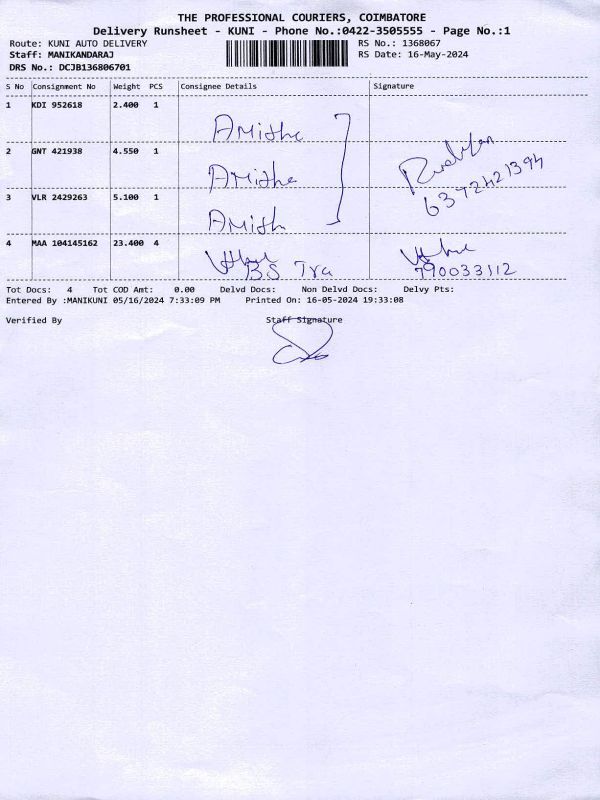 THE PROFESSIONAL COURIERS, COIMBATORE
Delivery Runsheet - KUNI - Phone No.:0422-3505555 - Page No.:1
Route: KUNI AUTO DELIVERY RS No.: 1368067
Staff: MANIKANDARAJ RS Date: 16-May-2024
DRS No.: DCJB136806701
S No Consignment No Weight PCS Consignee Details Signature
1 KDI 952618 2.400 1
Amithe
2 GNT 421938 4.550 1
Amithe
3 VLR 2429263 5.100 1
6372421394
Amith
4 MAA 104145162 23.400 4
BS Tra 790033112
Tot Docs: 4 Tot COD Amt: 0.00 Delvd Docs: Non Delvd Docs: Delvy Pts:
Entered By :MANIKUNI 05/16/2024 7:33:09 PM Printed On: 16-05-2024 19:33:08
Verified By Staff Signature